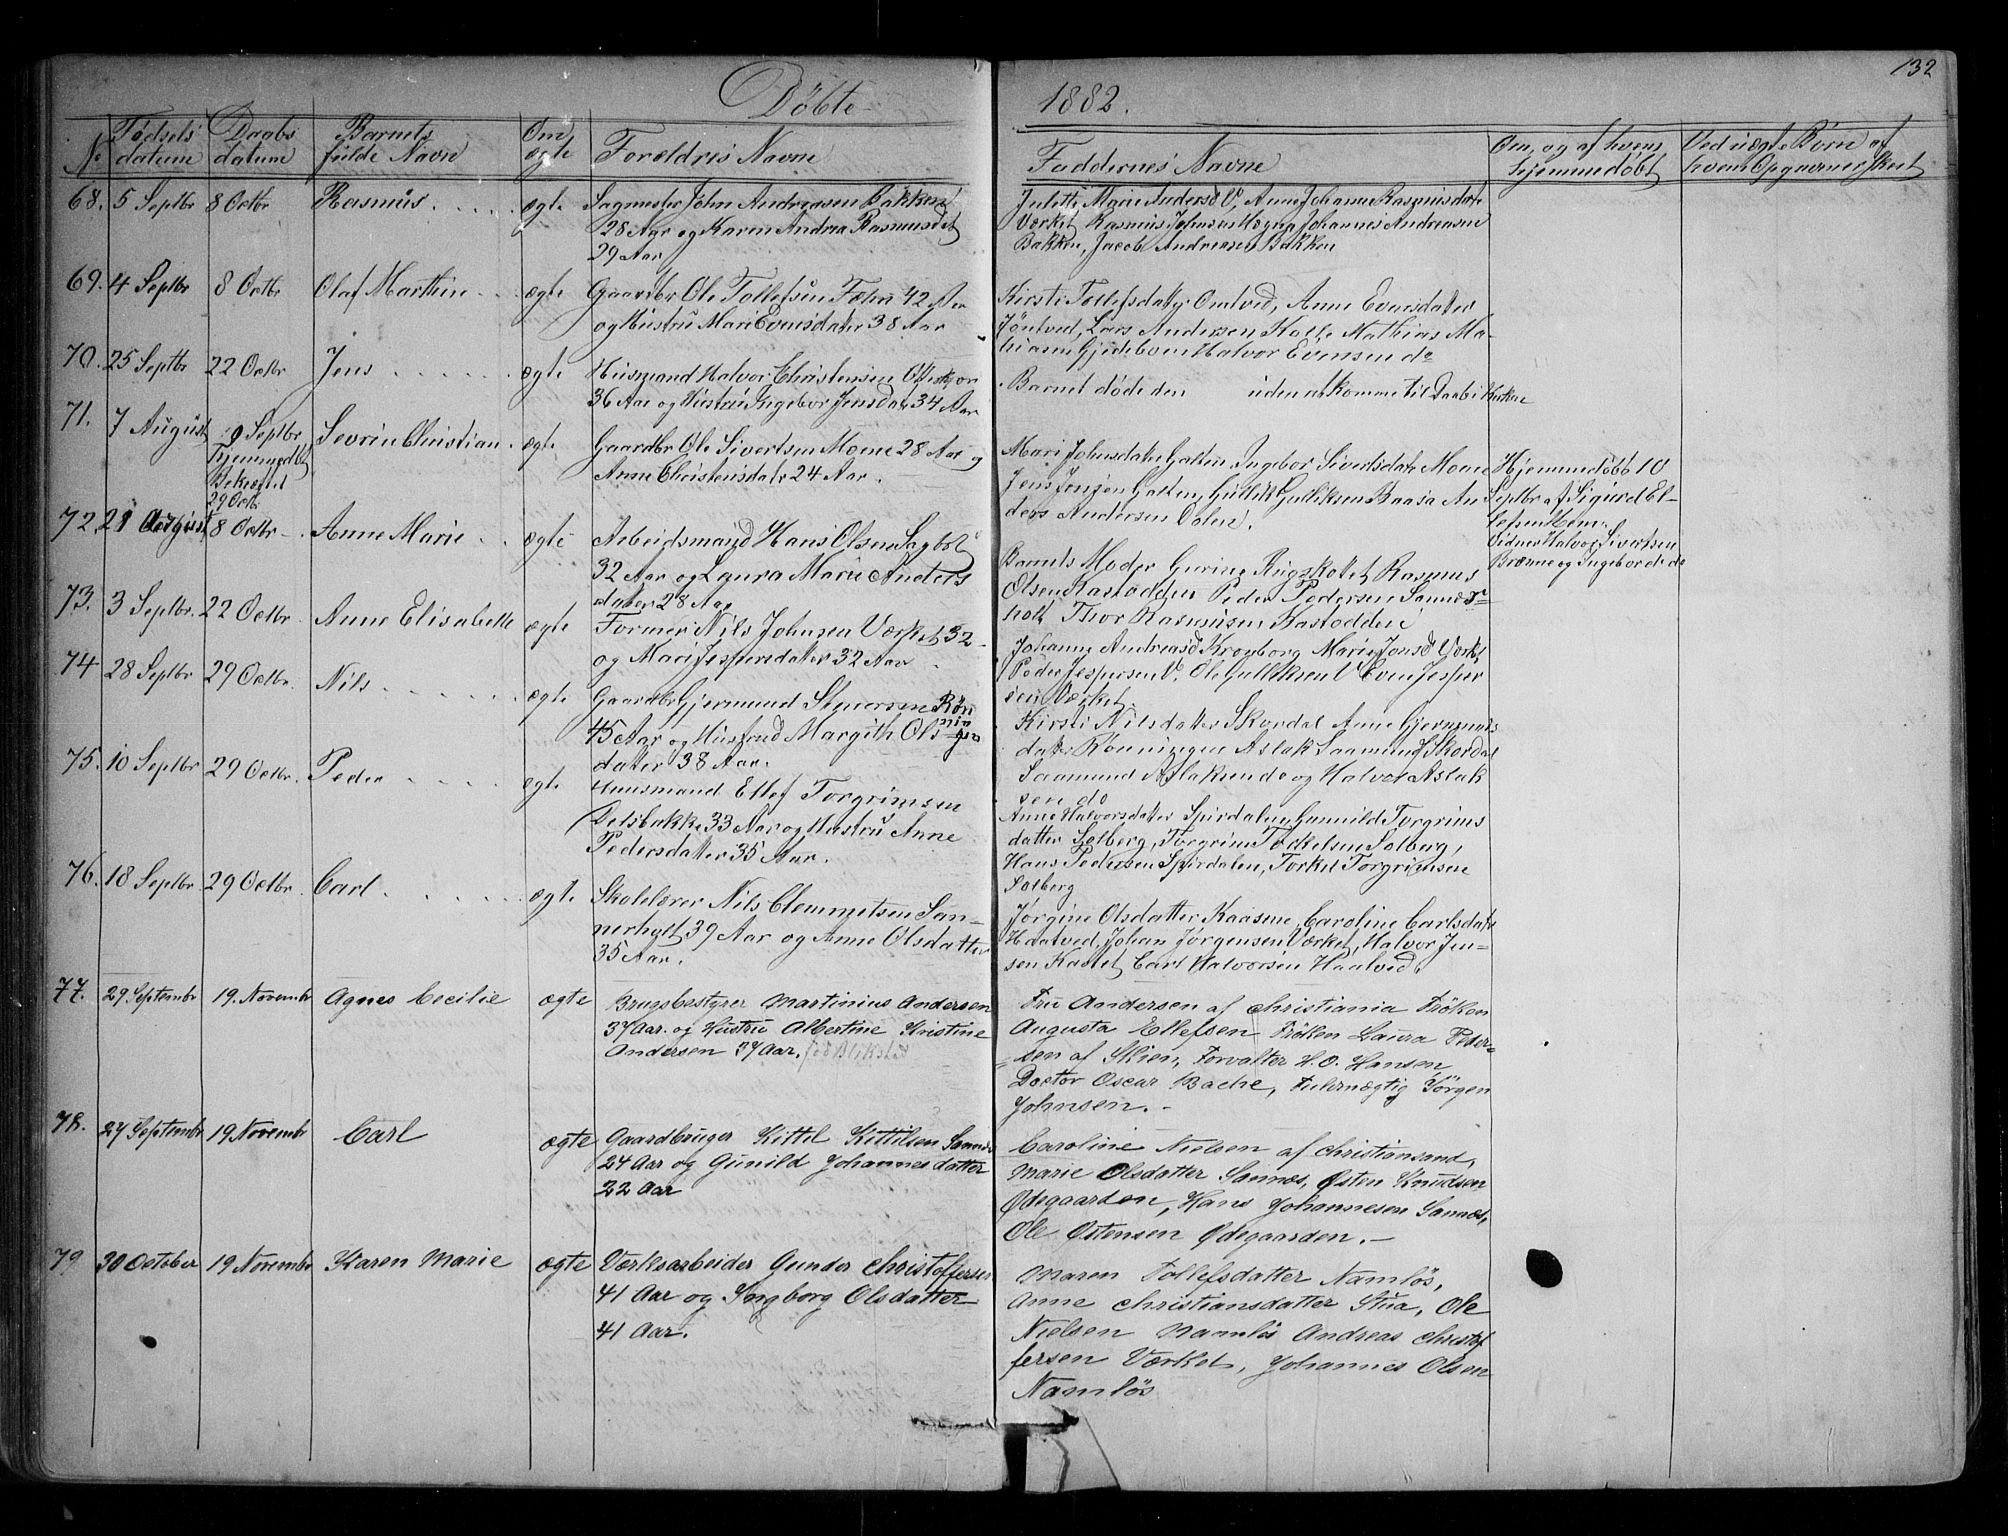 132
Döbte
1882.
No
Födsels datum
Daabs datum
Barnets fulde Navn
Om ægte
Forældres Navne
Faddernes Navne
Om, og af hvem hjemmedöbt
Ved uægte Börn af hvem Opgaven er skeet
68. 5 Septbr 8 Octbr Rasmus ægte
Sagmester John Andreasen Bakken
28 Aar og Karen Andrea Rasmusdat
29 Aar
Julette Marie Andersd V. Anne Johanne Rasmusdatr
Værket Rasmus Johnsen Johannes Andreasen
Bakken, Jacob Andreasen Bakken
69. 4 Septbr 8 Octbr Olaf Marthin ægte
Gaardbr Ole Tollefsen 42 Aar
og Hustru Mari Evensdater 38 Aar
Kirsti Tollefsdatr Omtved, Anne Evensdater
Jöntved, Lars Andersen Mathias Ma-
thiasen Halvor Evensen do
70. 25 Septbr 22 Octbr Jens ægte
Husmand Halvor Christensen
36 Aar og Hustru Ingebor Jensdatr 34 Aar
Barnet döde den uden at komme til Daab i Kirken
71. 7 August 9 Septbr Sevrin Christian ægte
Hjemmedöbt
Bekræftet
29 Octbr
Gaardbr Ole Sivertsen Moene 28 Aar og
Anne Christensdatr 24 Aar.
Mari Johnsdatr Galten Ingebor Sivertsdatr Moene
Jens Jensen Galten, Gullik Gulliksen Baasa An-
ders Andersen Dalen.
Hjemmedöbt 10
Septbr af Sigurd El-
lefsen
Vidner Halvor Sivertsen
og Ingebor do do
72. 21 August 8 Octbr Anne Marie ægte
Arbeidsmand Hans Olsen
32 Aar og Laura Marie Anders
dater 28 Aar
Barnets Moder Gurine Rugskotet Rasmus
Olsen Kastodden Peder Pedersen Sannær-
holt Thor Rasmusen Kastodden
73. 3 Septbr. 22 Octbr. Anne Elisabeth ægte
Former Nils Johnsen Værket 32
og Mari Jespersdater 32 Aar
Johanne Andreasd Kronborg Marie Jonsd Værkt
Peder Jespersen V. Ole Gulliksen V Even Jesper
sen Værket
74 28 Septbr 29 Octbr. Nils ægte
Gaardbr Gjermund Rön
nin
45 Aar og Husfrud Margith Ols- gen
dater 38 Aar.
Kirsti Nilsdater Skordal Anne Gjermunds
dater Rönningen Aslak Saamunds Skordal
Saamund Aslaksen do og Halvor Aslak
sen do
75. 10 Septbr 29 Octbr. Peder ægte
Huusmand Ellef Torgrimsen
Delsbakke 33 Aar og Hustru Anne
Pedersdater 35 Aar.
Anne Halvorsdater Spirdalen, Gunnild Torgrims
datter Solberg, Torgrim Torkelsen Solberg,
Hans Pedersen Spirdalen, Torkel Torgrimsen
Solberg
76. 18 Septbr. 29 Octbr. Carl ægte
Skolelærer Nils Clemmetsen San-
nerholt 39 Aar og Anne Olsdatter
35 Aar.
Jörgine Olsdatter Kaasene, Caroline Carlsdatr
Haatved, Johan Jörgensen Værket, Halvor Jen-
sen Kastet, Carl Halvorsen Haatved.
77. 29 Septembr 19. Novembr Agnes Cecilie ægte
Brugsbestyrer Martinius Andersen
37 Aar. og Hustru Albertine Kristine
Andersen 37 Aar. föd Blikstad
Fru Andersen af Christiania Fröken
Augusta Ellefsen Fröken Laura Peder-
sen af Skien, Forvalter H. O. Hansen
Doctor Oscar Bache, Fulmægtig Jörgen
Johnsen.-
78. 27 Septembr 19 Novembr Carl ægte
Gaardbruger Kittel Kittilsen Sannes
24 Aar og Gunild Johannesdatter
22 Aar
Caroline Nielsen af Christiansand,
Marie Olsdatter Sannes, Østen Knudsen
Ødegaarden, Hans Johannesen Sannes,
Ole Østensen Ødegaarden.-
79 30 October 19 Novembr Karen Marie ægte
Værksarbeider Gunder Christoffersen
41 Aar og Ingborg Olsdatter
41 Aar.
Maren Tollefsdatter Namlös,
Anne Christiansdatter Stua, Ole
Nielsen Namlös Andreas Christof
fersen Værket, Johannes Olsen
Namlös